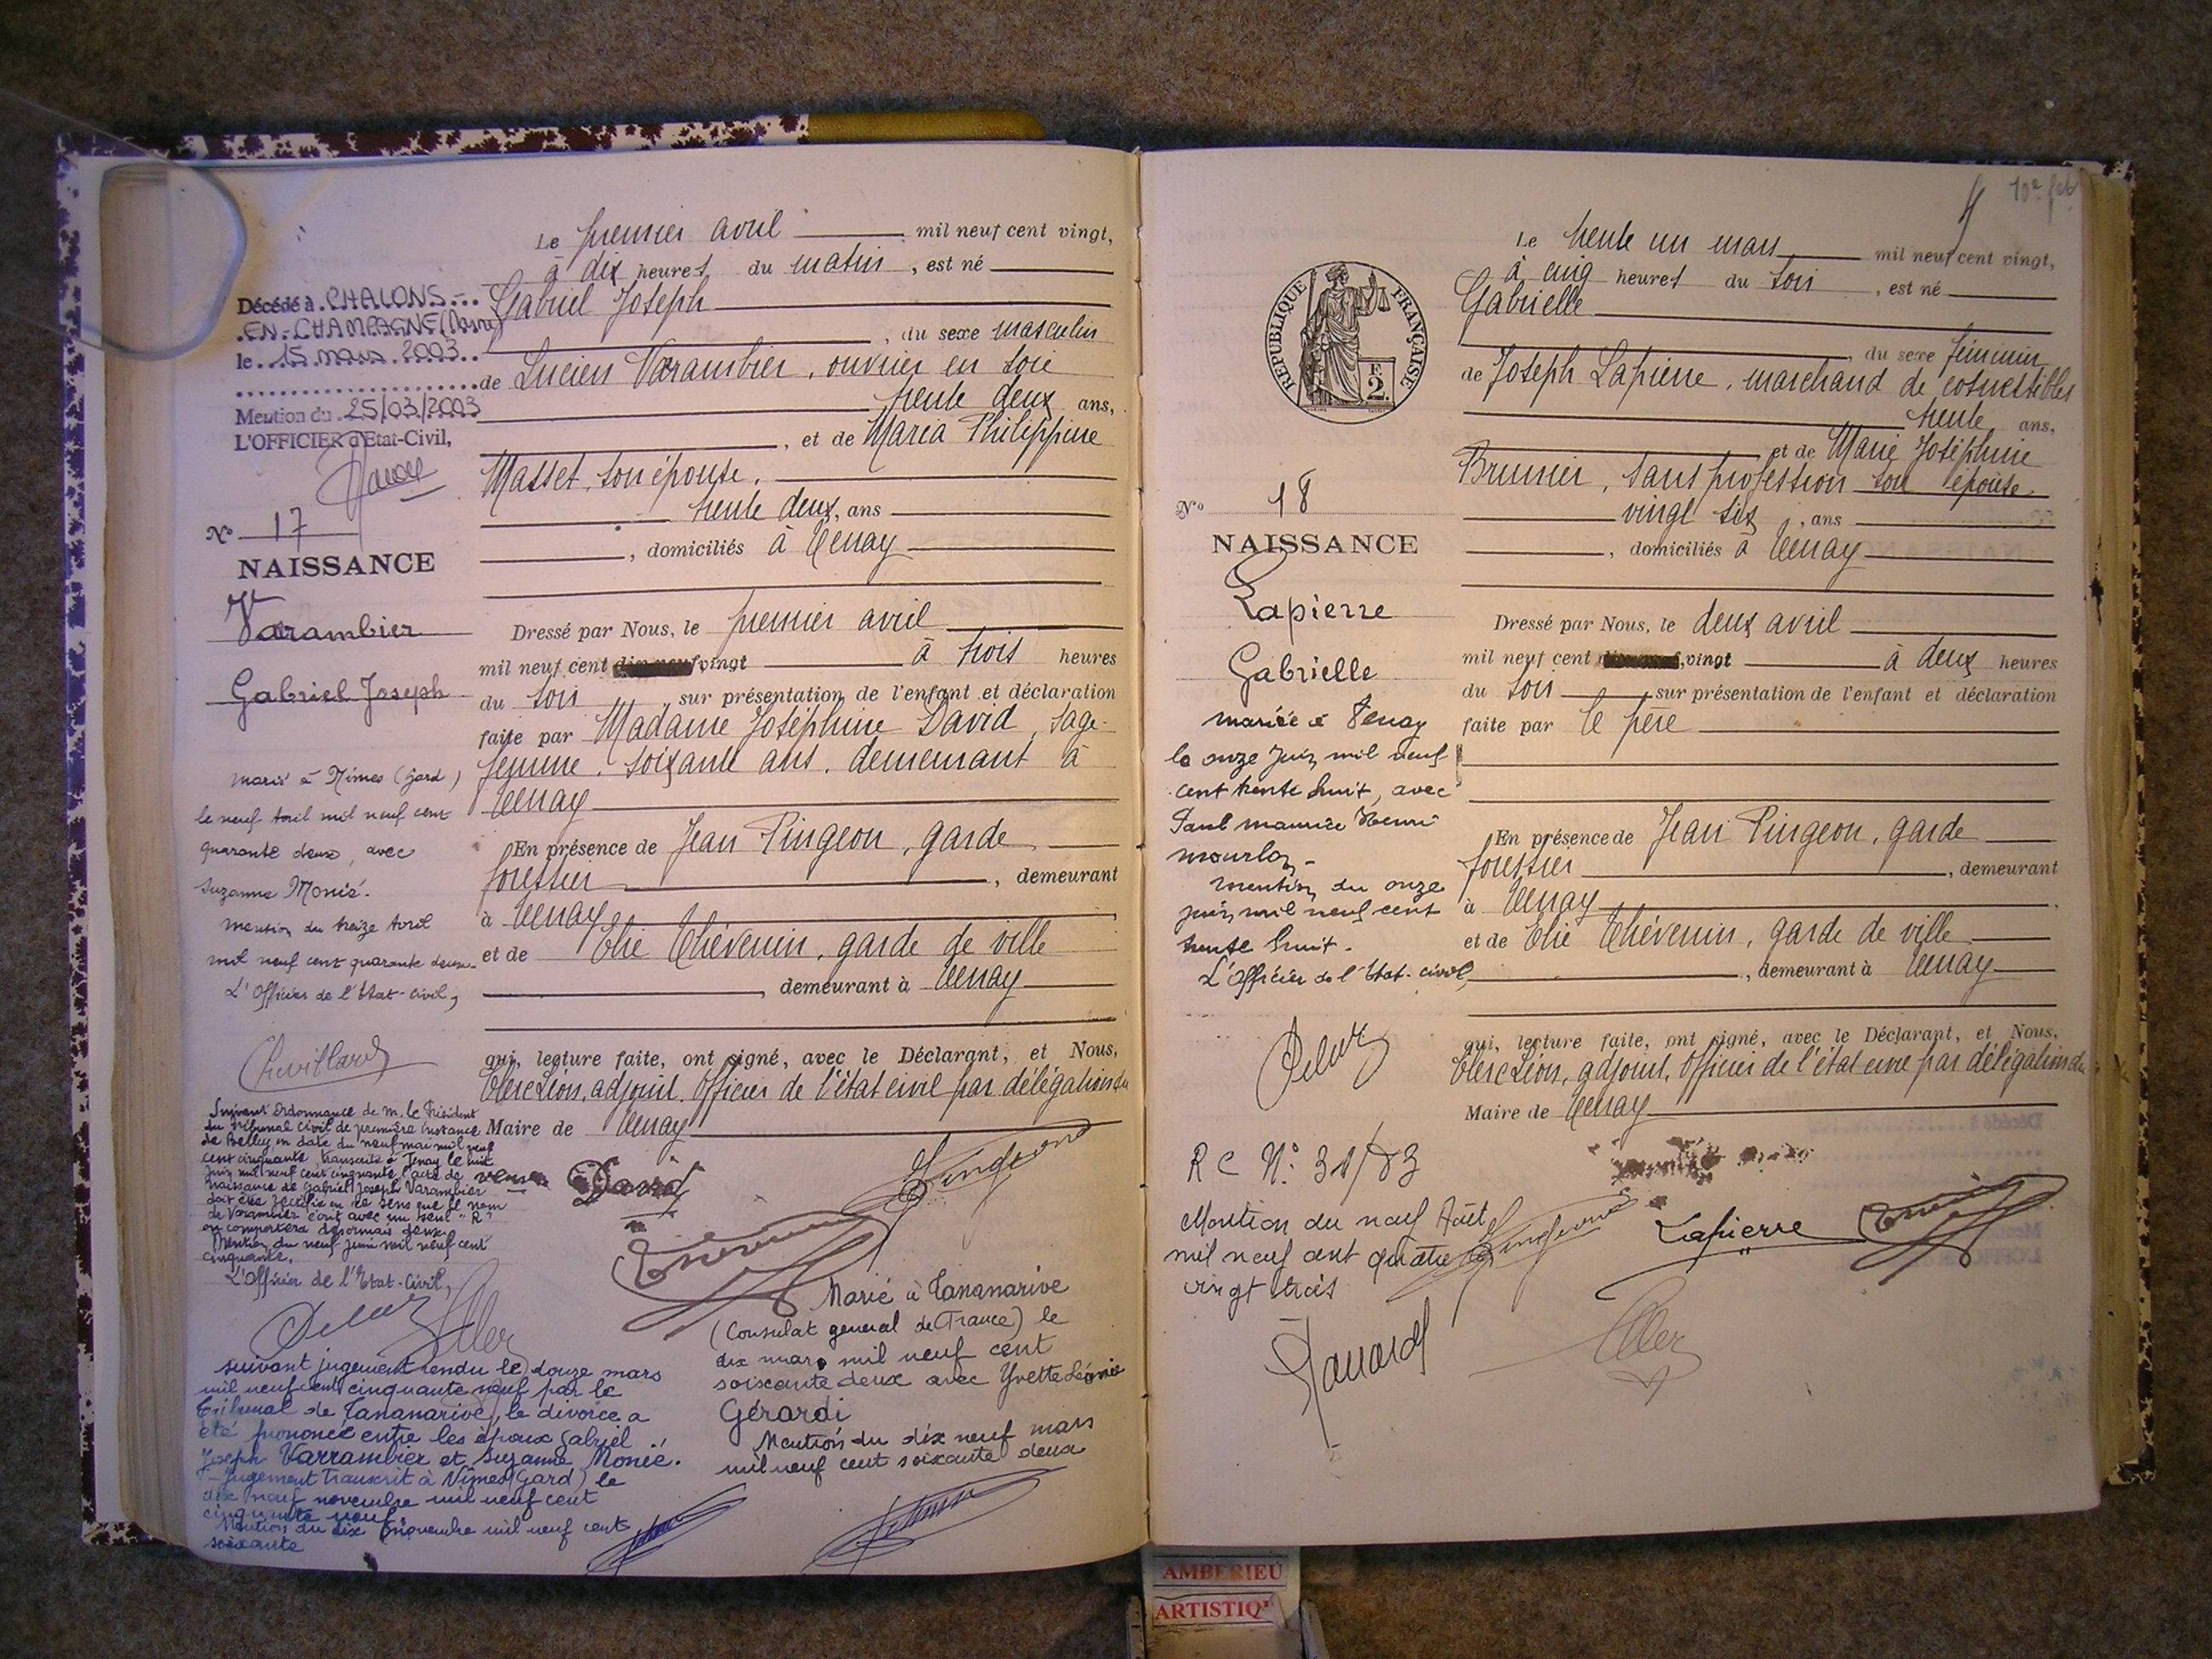 Le premier avril mil neuf cent vingt,
à dix heures du matin, est né
Gabriel Joseph
, du sexe masculin
de Lucien Varambier, ouvrier en soie
trente deux ans,
, et de Maria Philippine
Masset, son épouse,
trente deux, ans
, domiciliés à Tenay
Dressé par Nous, le premier avril
mil neuf cent vingt à trois heures
du soir, sur présentation de l'enfant et déclaration
faite par Madame Joséphine David, sage-
femme, soixante ans, demeurant à
Tenay
En présence de Jean Pingeon, garde
forestier, demeurant
à Tenay
et de Elie Thévenin, garde de ville
, demeurant à Tenay
qui, lecture faite, ont signé, avec le Déclarant, et Nous,
Clerc Léon, adjoint, Officier de l'état civil par délégation du
Maire de Tenay
veuve David
Pingeon
Thévenin
Décédé à CHALONS
EN-CHAMPAGNE (Marne)
le 15 mars 2003
Mention du 25/03/2003
L'OFFICIER d'Etat-Civil,
N° 17
NAISSANCE
Varambier
Gabriel Joseph
marié à Nîmes (Gard)
le neuf Avril mil neuf cent
quarante deux, avec
Suzanne Monié.
mention du treize Avril
mil neuf cent quarante deux.
L'Officier de l'Etat-civil,
Suivant Ordonnance de M. le Président
du Tribunal Civil de première instance
de Belley en date du neuf mai mil neuf
cent cinquante, transcrite à Tenay le huit
Juin mil neuf cent cinquante l'acte de
naissance de Gabriel Joseph Varambier
doit être rectifié en ce sens que le nom
de Varambier écrit avec un seul "R"
en comportera désormais deux.
Mention du neuf Juin mil neuf cent
cinquante.
L'Officier de l'Etat-Civil,
suivant jugement rendu le douze mars
mil neuf cent cinquante neuf par le
Tribunal de Tananarive, le divorce a
été prononcé entre les époux Gabriel
Joseph Varrambier et Suzanne Monié.
Jugement transcrit à Nîmes (Gard) le
dix neuf novembre mil neuf cent
cinquante neuf.
Mention du dix novembre mil neuf cent
soixante
Marié à Tananarive
(Consulat général de France) le
dix mars mil neuf cent
soixante deux avec Yvette Léonie
Gérardi
Mention du dix neuf mars
mil neuf cent soixante deux
Le trente un mars mil neuf cent vingt,
à cinq heures du soir, est né
Gabrielle
, du sexe féminin
de Joseph Lapierre, marchand de comestibles
trente ans,
et de Marie Joséphine
Brunier, sans profession son épouse,
vingt six, ans
, domiciliés à Tenay
Dressé par Nous, le deux avril
mil neuf cent vingt à deux heures
du soir, sur présentation de l'enfant et déclaration
faite par le père
En présence de Jean Pingeon, garde
forestier, demeurant
à Tenay
et de Elie Thévenin, garde de ville
, demeurant à Tenay
qui, lecture faite, ont signé, avec le Déclarant, et Nous,
Clerc Léon, adjoint, Officier de l'état civil par délégation du
Maire de Tenay
Pingeon
Lapierre
Thévenin
Clerc
REPUBLIQUE FRANÇAISE
F.
2.
N° 18
NAISSANCE
Lapierre
Gabrielle
mariée à Tenay
le onze Juin mil neuf
cent trente huit, avec
Paul Maurice Henri
Mourlon.
mention du onze
juin mil neuf cent
trente huit.
L'Officier de l'Etat-civil,
RC N° 31/83
Mention du neuf Août
mil neuf cent quatre
vingt trois
AMBERIEU
ARTISTIQ